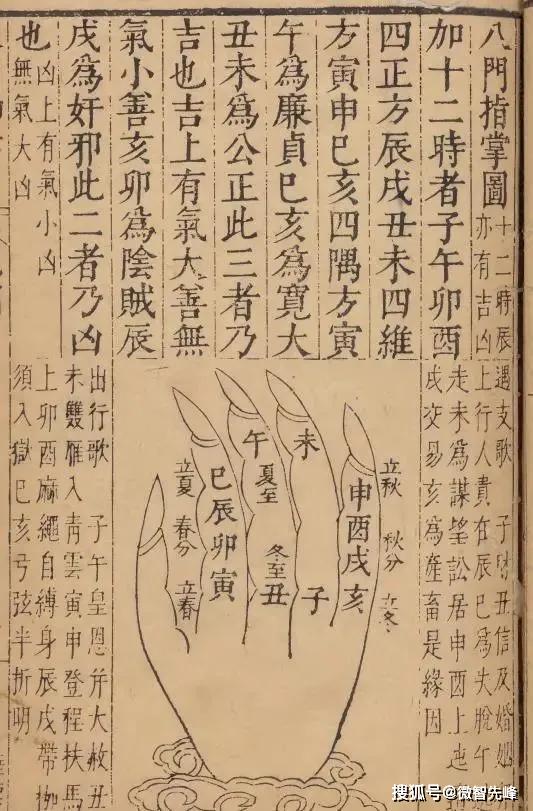 八門指掌圖
十二時辰
亦有吉凶
加十二時者子午卯酉
四正方辰戌丑未四維
方寅申巳亥四隅方寅
午爲廉貞巳亥爲寬大
丑未爲公正此三者乃
吉也吉上有氣大善無
氣小善亥卯爲陰賊辰
戌爲奸邪此二者乃凶
也
凶上有氣小凶
無氣大凶
遇支歌 子 丑信及婚姻
上行人貴在辰巳爲失脫午
走未爲謀望訟居申酉上
戌交易亥爲產畜是緣因
立秋
秋分
立冬
申酉戌亥
未
子
午
夏至
冬至
丑
巳辰卯寅
立夏
春分
立春
出行歌 子午皇恩并大赦丑
未雙雁入青雲寅申登程扶馬
上卯酉麻繩自縛身辰戌帶枷
須入獄巳亥弓弦半折明
搜狐号@微智先峰